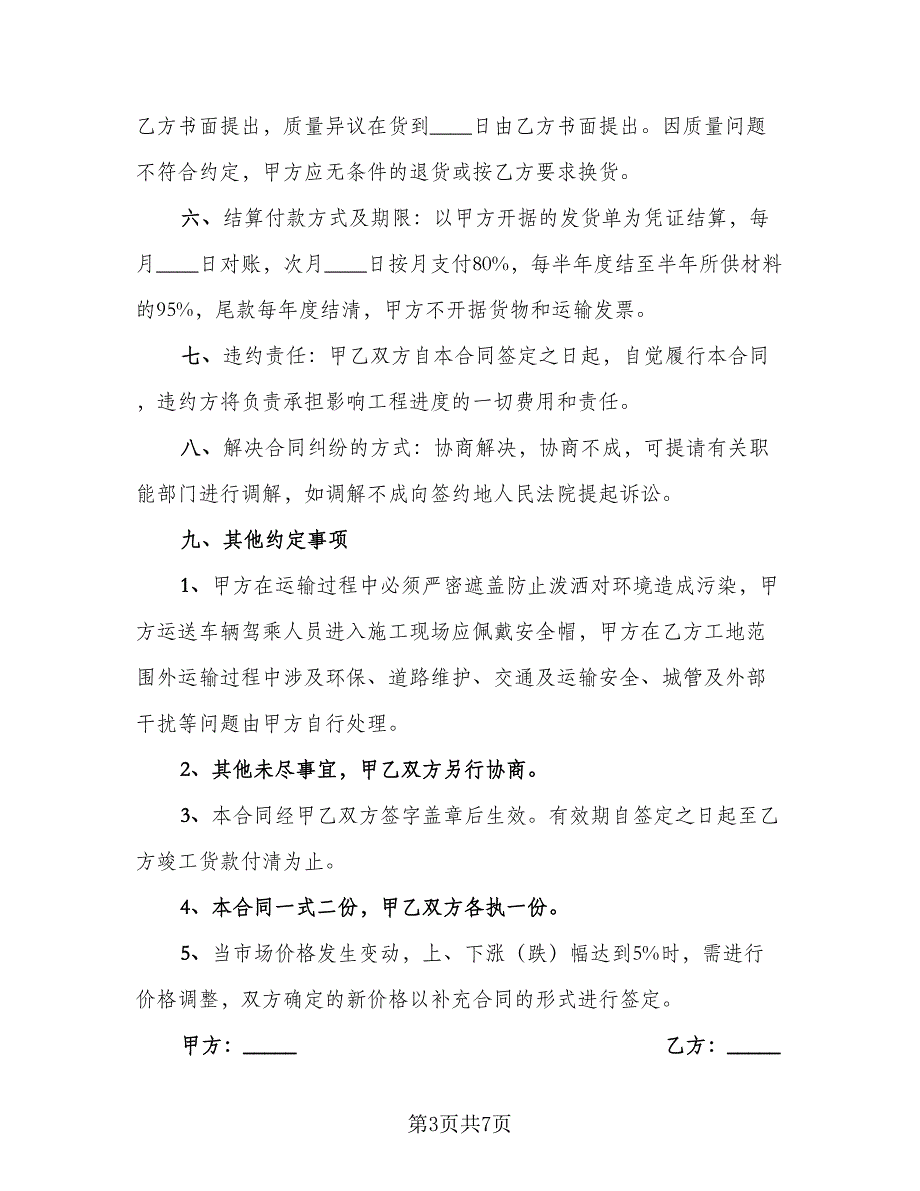 乙方书面提出，质量异议在货到____日由乙方书面提出。因质量问题
不符合约定，甲方应无条件的退货或按乙方要求换货。
六、结算付款方式及期限：以甲方开据的发货单为凭证结算，每
月____日对账，次月____日按月支付80%，每半年度结至半年所供材料
的95%，尾款每年度结清，甲方不开据货物和运输发票。
七、违约责任：甲乙双方自本合同签定之日起，自觉履行本合同
，违约方将负责承担影响工程进度的一切费用和责任。
八、解决合同纠纷的方式：协商解决，协商不成，可提请有关职
能部门进行调解，如调解不成向签约地人民法院提起诉讼。
九、其他约定事项
1、甲方在运输过程中必须严密遮盖防止泼洒对环境造成污染，甲
方运送车辆驾乘人员进入施工现场应佩戴安全帽，甲方在乙方工地范
围外运输过程中涉及环保、道路维护、交通及运输安全、城管及外部
干扰等问题由甲方自行处理。
2、其他未尽事宜，甲乙双方另行协商。
3、本合同经甲乙双方签字盖章后生效。有效期自签定之日起至乙
方竣工货款付清为止。
4、本合同一式二份，甲乙双方各执一份。
5、当市场价格发生变动，上、下涨（跌）幅达到5%时，需进行
价格调整，双方确定的新价格以补充合同的形式进行签定。
甲方：_____ 乙方：_____
第3页共7页